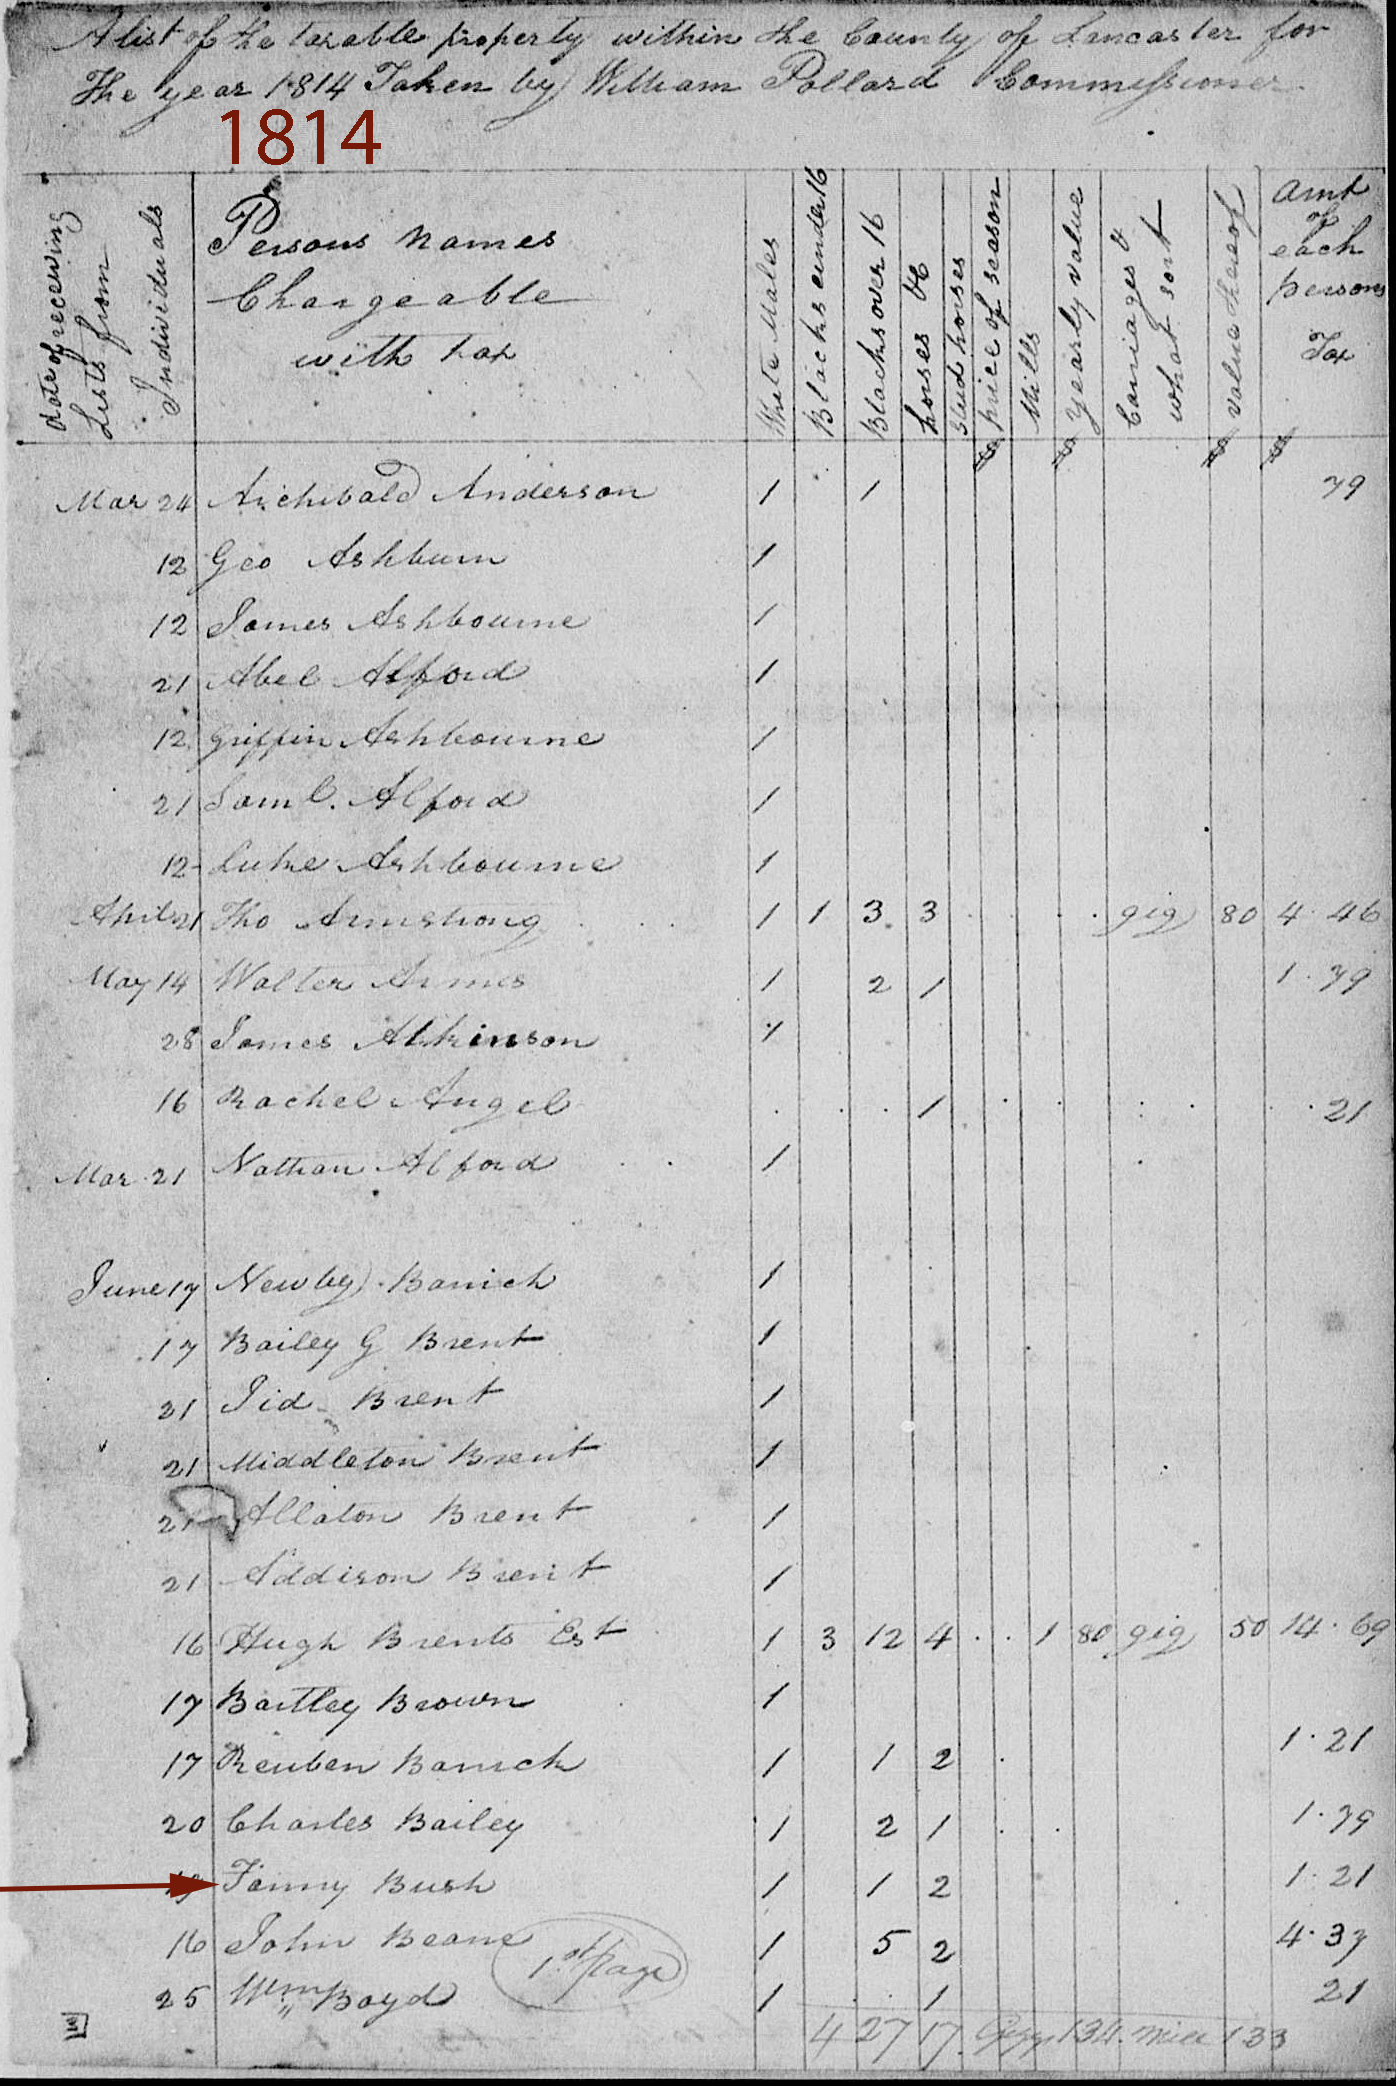 A list of the taxable property within the County of Lancaster for
The year 1814 Taken by William Pollard Commissioner
1814
Date of receeving Lists from Individuals
Persons names Chargeable with tax
White Males
Blacks under 16
Blacks over 16
horses &c
Stud horses
price of season
Mills
yearly value
Carriages & what sort
value thereof
Amt of each persons Tax
Mar 24 Archibald Anderson 1 1 79
12 Geo Ashburn 1
12 James Ashbourne 1
21 Abel Alford 1
12 Griffin Ashbourne 1
21 Saml. Alford 1
12 Luke Ashbourne 1
April 21 Tho Armstrong 1 1 3 3 gig 80 4.46
May 14 Walter Armes 1 2 1 1.79
28 James Atkinson 1
16 Rachel Angel 1 .21
Mar 21 Nathan Alford 1
June 17 Newby Barrick 1
17 Bailey G Brent 1
21 Brent 1
21 Middleton Brent 1
21 Brent 1
21 Addison Brent 1
16 Hugh Brents Est 1 3 12 4 1 80 gig 50 14.69
17 Bartley Brown 1
17 Reuben Barrick 1 1 2 1.21
20 Charles Bailey 1 2 1 1.79
Fanny Bush 1 1 2 1.21
16 John Beane 1 5 2 4.37
1st page
25 Wm Boyd 1 1 21
4 27 17 134 133